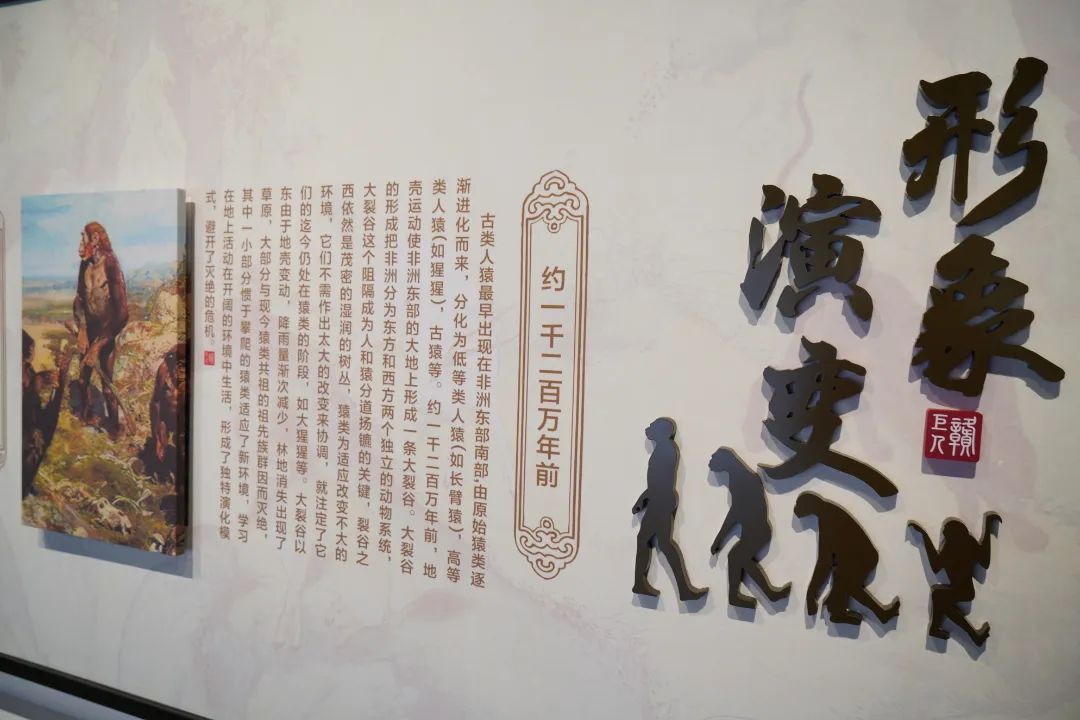 形象
演变
巨人
约一千二百万年前
古类人猿最早出现在非洲东部南部,由原始猿类逐
渐进化而来，分化为低等类人猿(如长臂猿)，高等
类人猿(如猩猩)，古猿等。约一千二百万年前，地
壳运动使非洲东部的大地上形成一条大裂谷。大裂谷
的形成把非洲分为东方和西方两个独立的动物系统，
大裂谷这个阻隔成为人和猿分道扬镳的关键，裂谷之
西依然是茂密的湿润的树丛，猿类为适应改变不大的
环境，它们不需作出太大的改变来协调，就注定了它
们的迄今仍处在猿类的阶段，如大猩猩等。大裂谷以
东由于地壳变动，降雨量渐次减少，林地消失出现了
草原，大部分与现今猿类共祖的祖先族群因而灭绝，
其中一小部分惯于攀爬的猿类适应了新环境，学习
在地上活动在开阔的环境中生活，形成了独特演化模
式，避开了灭绝的危机。